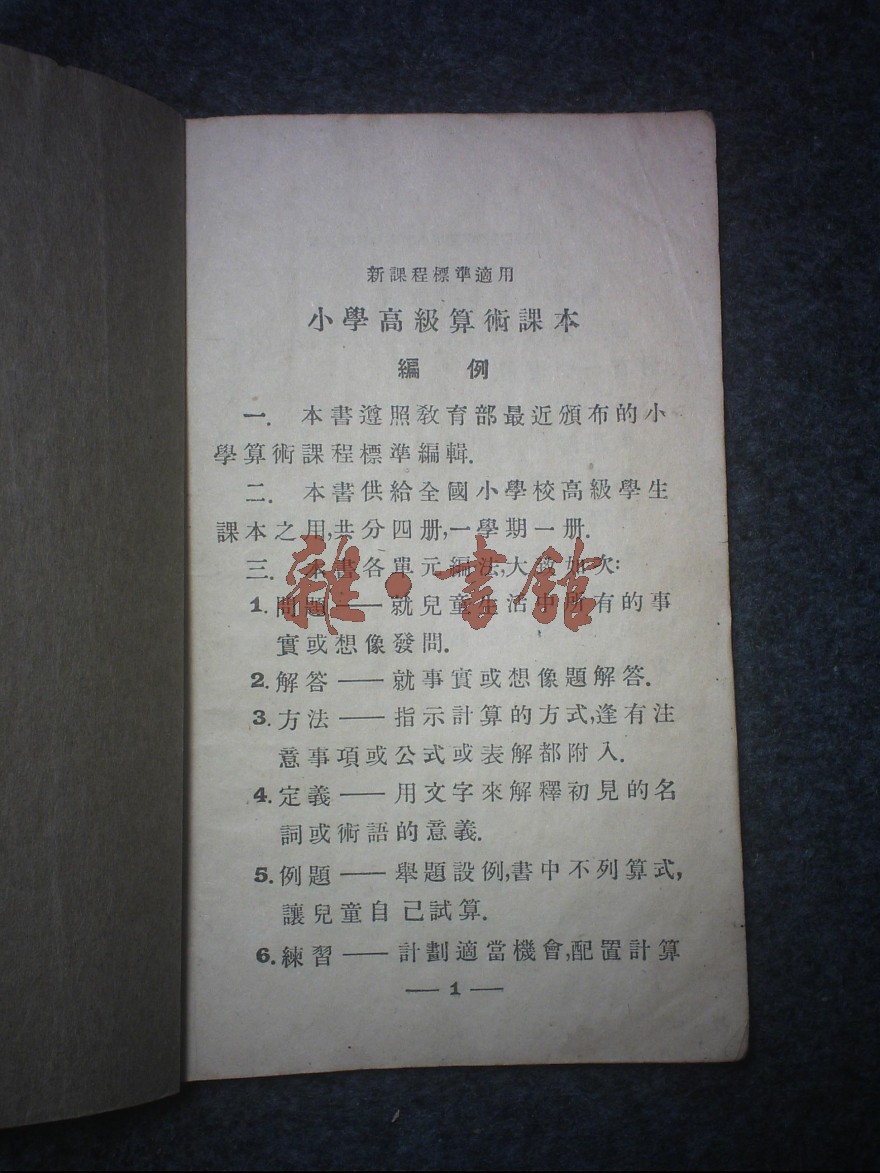 新課程標準適用
小學高級算術課本
編 例
一. 本書遵照教育部最近頒布的小
學算術課程標準編輯.
二. 本書供給全國小學校高級學生
課本之用,共分四册,一學期一册.
三. 本書各單元編法,大致如次:
1. 問題——就兒童生活中所有的事
實或想像發問.
2. 解答——就事實或想像題解答.
3. 方法——指示計算的方式,逢有注
意事項或公式或表解都附入.
4. 定義——用文字來解釋初見的名
詞或術語的意義.
5. 例題——舉題設例,書中不列算式,
讓兒童自己試算.
6. 練習——計劃適當機會,配置計算
— 1 —
雜·書館